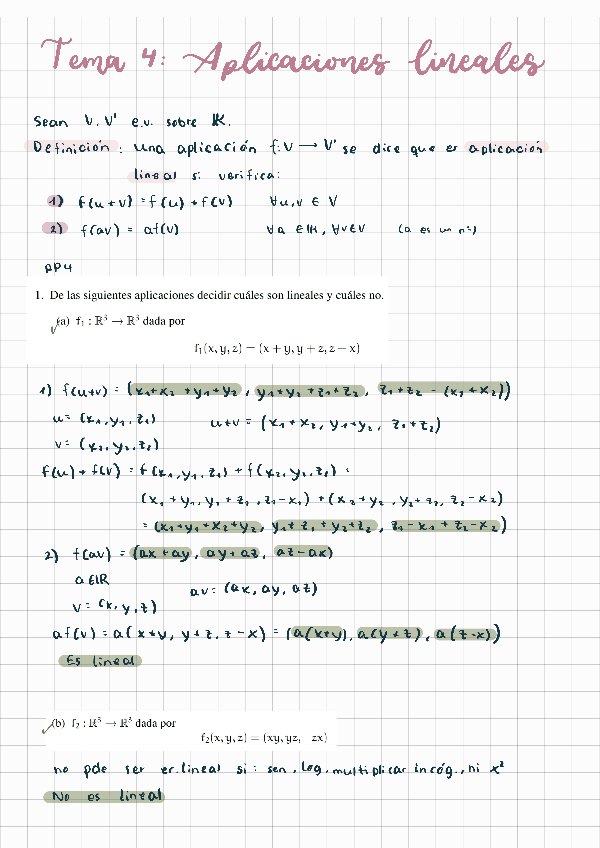 Tema 4: Aplicaciones lineales
Sean V, V' e.v. sobre IK.
Definición: una aplicación f: V → V' se dice que es aplicación
lineal si verifica:
1) f(u+v) = f(u) + f(v) ∀u,v ∈ V
2) f(av) = af(v) ∀a ∈ IK, ∀v ∈ V (a es un nº)
AP4
1. De las siguientes aplicaciones decidir cuáles son lineales y cuáles no.
(a) f₁ : ℝ³ → ℝ³ dada por
f₁(x, y, z) = (x + y, y + z, z − x)
1) f(u+v) = (x₁+x₂ + y₁+y₂, y₁+y₂ + z₁+z₂, z₁+z₂ − (x₁+x₂))
u = (x₁, y₁, z₁) u+v = (x₁ + x₂, y₁+y₂, z₁+z₂)
v = (x₂, y₂, z₂)
f(u) + f(v) = f(x₁, y₁, z₁) + f(x₂, y₂, z₂) =
(x₁ + y₁, y₁ + z₁, z₁ − x₁) + (x₂ + y₂, y₂ + z₂, z₂ − x₂)
= (x₁+y₁ + x₂+y₂, y₁+z₁ + y₂+z₂, z₁ − x₁ + z₂ − x₂)
2) f(av) = (ax + ay, ay + az, az − ax)
a ∈ IR av = (ax, ay, az)
v = (x, y, z)
af(v) = a(x+y, y+z, z−x) = (a(x+y), a(y+z), a(z−x))
Es lineal
(b) f₂ : ℝ³ → ℝ³ dada por
f₂(x, y, z) = (xy, yz, zx)
no pde ser er.lineal si: sen, log, multiplicar incóg., ni x²
No es lineal